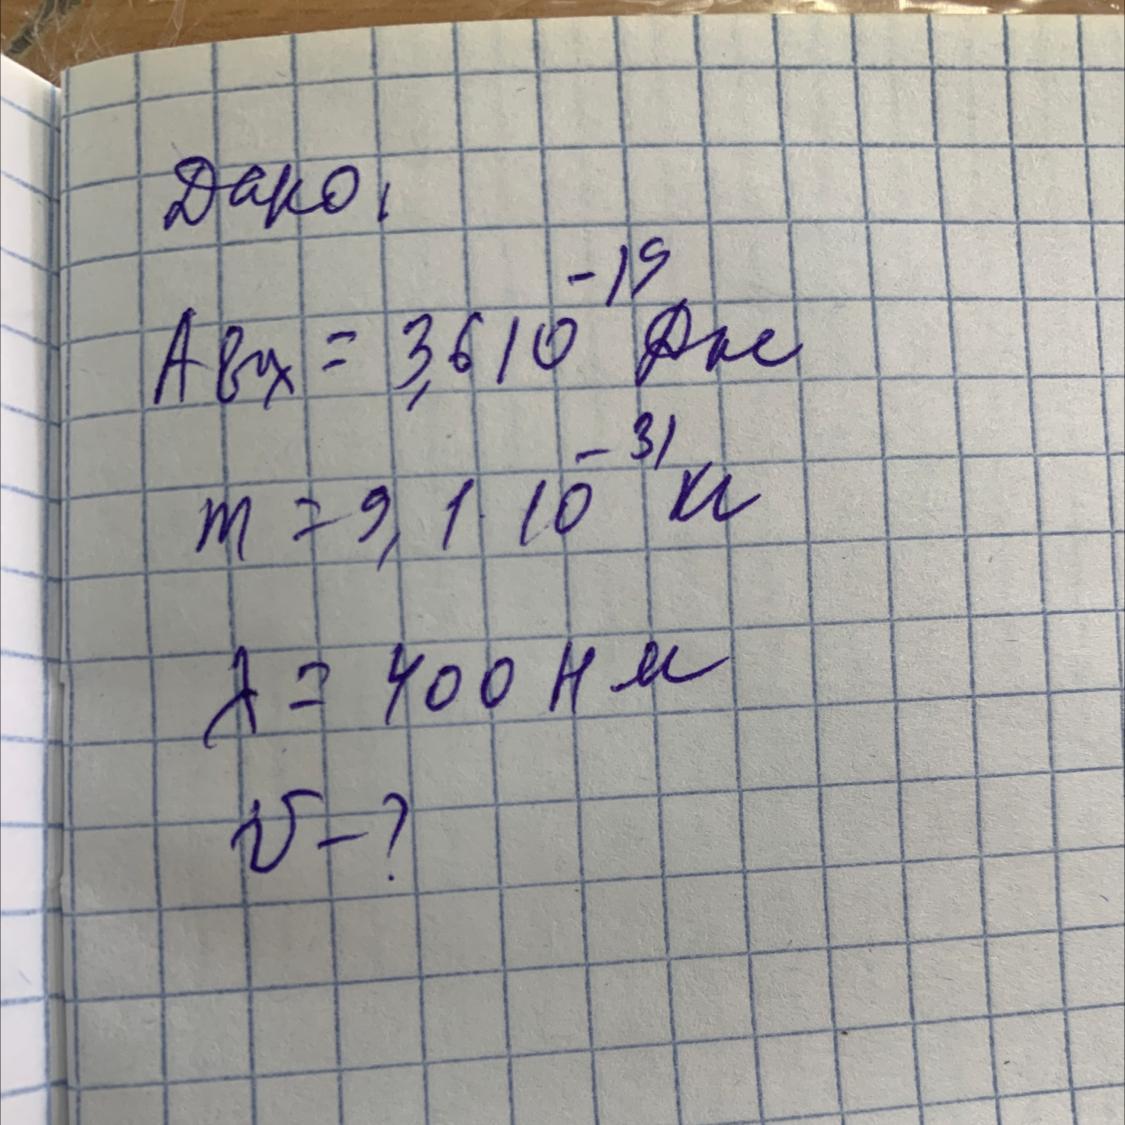 Дано,
Aвх = 3,6 10⁻¹⁹ Дж
m = 9,1 10⁻³¹ кг
λ = 400 нм
v - ?